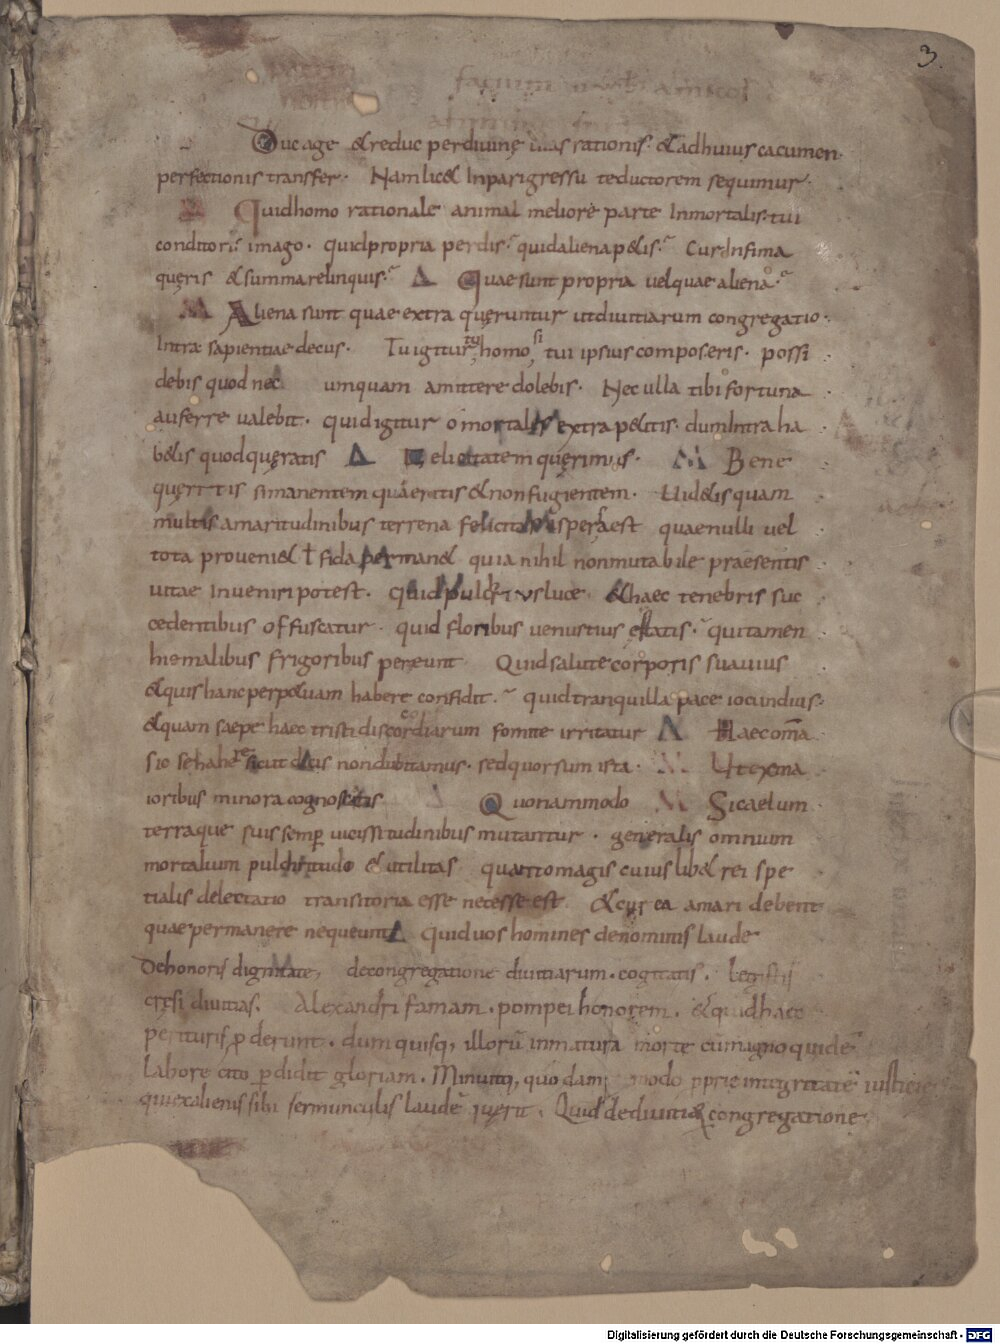 3
Duc age & reduc per divine vias rationis & ad huius cacumen
perfectionis transfer. Nam lic& Inpari gressu te ductorem sequimur.
M Quid homo rationale animal meliore parte Inmortalis tui
conditoris imago. quid propria perdis. quid aliena p&is. Cur Infima
quęris & summa relinquis. Δ Quae sunt propria vel quae aliena.
M Aliena sunt quae extra quęruntur ut divitiarum congregatio.
Intra sapientiae decus. Tu igitur tu homo si tui ipsius compos eris. possi
debis quod nec umquam amittere dolebis. Nec ulla tibi fortuna
auferre valebit. quid igitur o mortales extra p&itis. dum Intra ha
b&is quod quęratis Δ Felicitatem quęrimus. M Bene
quęritis si manentem quaeritis & non fugientem. Uid&is quam
multis amaritudinibus terrena felicitas aspersa est quae nulli vel
tota proveni& ł fida perman& quia nihil non mutabile praesentis
vitae Inveniri potest. quid pulchrius luce & haec tenebris suc
cedentibus offuscatur. quid floribus venustius ęstatis. qui tamen
hiemalibus frigoribus pereunt Quid salute corporis suavius
& quis hanc perp&uam habere confidit. quid tranquilla pace iocundius.
& quam saepe haec tristi discordiarum fomite irritatur Δ Haec omnia
sic se habere sicut dicis non dubitamus. sed quorsum ista. M Ut ex ma
ioribus minora cognoscatis Δ Quonam modo M Si caelum
terraque suis semper vicissitudinibus mutantur. generalis omnium
mortalium pulchritudo & utilitas quanto magis cuius lib& rei spe
tialis delectatio transitoria esse necesse est. & cur ea amari debent
quae permanere nequeunt Δ quid vos homines de hominis laude
de honoris dignitate, de congregatione divitiarum. cogitatis. Legistis
cręsi divitias. Alexandri famam. pompei honorem. & quid haec
perituris proderunt. dum quisq, illorū inmatura morte cū magno quidē
labore cito perdidit gloriam. Minuitq, quodam modo pprie integritatē iustitiae
qui ex alienis sibi sermunculis laudē quęrit. Quid de divitiarum congregatione
Digitalisierung gefördert durch die Deutsche Forschungsgemeinschaft - DFG